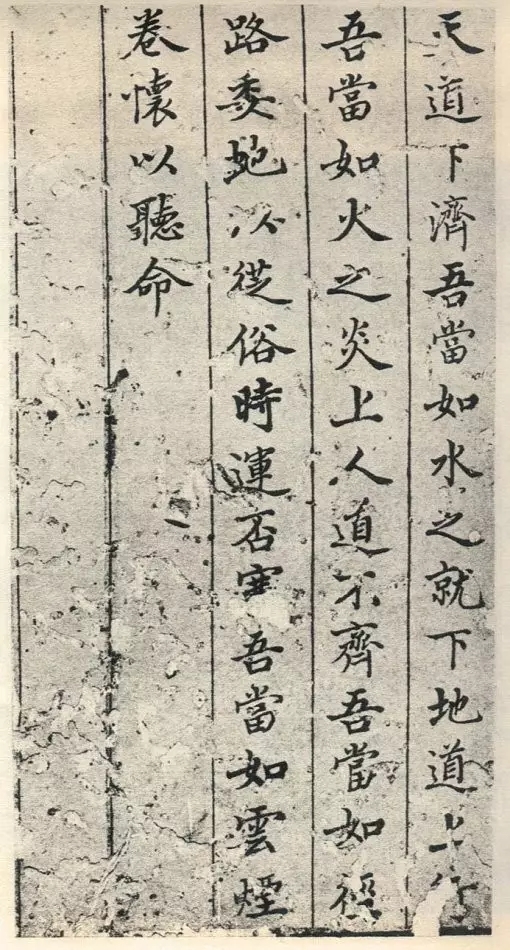 天道下濟吾當如水之就下地道上行
吾當如火之炎上人道不齊吾當如徑
路委虵以從俗時運否塞吾當如雲煙
卷懷以聽命